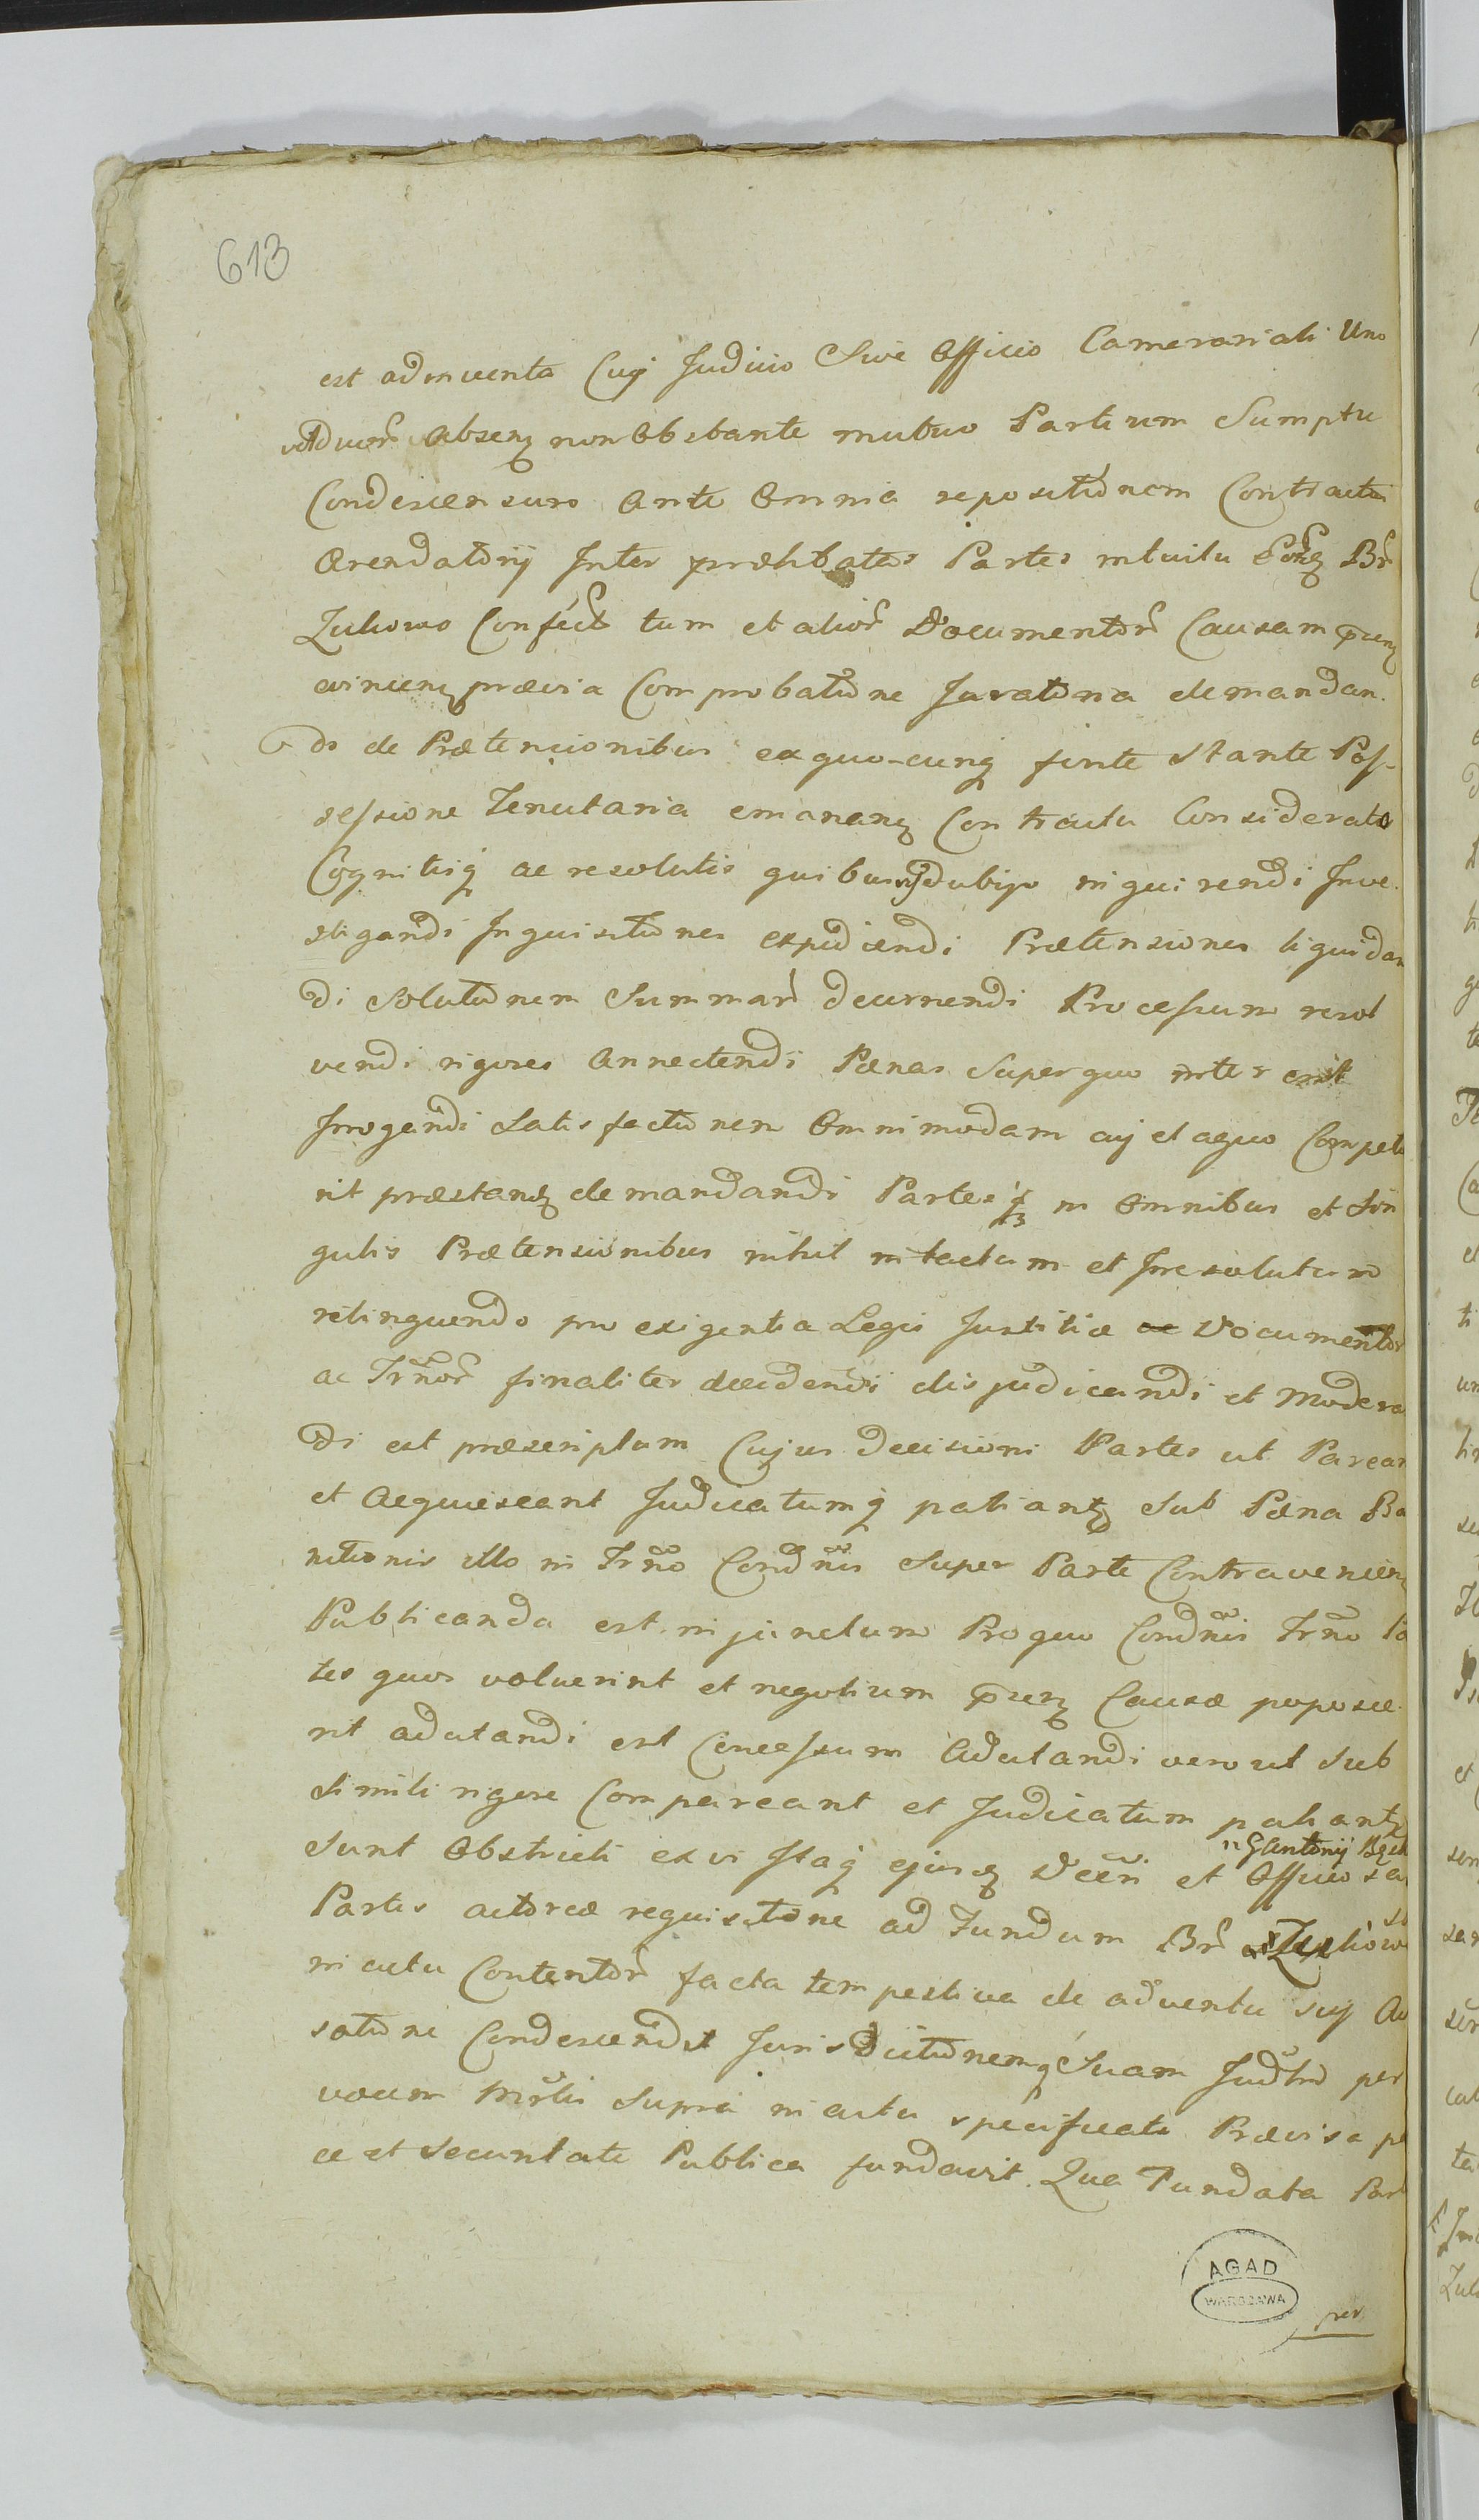 613
est adinventa Cuj Judicio Sive Officio Camerariali Uno
vel duor Absen non Obstante mutuo Partium Sumptu
Condescensuro Ante Omnia repositionem Contractus
Arendatorij Inter præhbatas Partes intuitu Bonor Br
Zuliowo Confect tum et alior Documentor Causam
evincen prævia Comprobatione Juratoria demandan.
do de Prætensionibus ex quo-cunq fonte Stante Pos-
sessione Tenutaria emanan Contractu Considerato
Cognitisq ac resolutis quibusvis dubijs inquirendi Inve.
stigandi Inquisitiones expediendi Prætensiones liquidan
di Solutionem Summar decernendi Processum resol
vendi rigores Annectendi Pænas Super quo inter erit
Irrogandi Satisfactionem Omnimodam cuj et a quo Compete
rit præstan demandandi Partes in Omnibus et Sin
gulis Prætensionibus nihil intactum et Irresolutum
relinquendo pro exigentia Legis Justitiæ ac Documentor
ac Trnor finaliter decidendi disjudicandi et Modera
di est præscriptum Cujus decisioni Partes ut Parean
et Acquiescant Judicatumq patiant Sub Pæna Ba
nitionis illo in Trno Condnis Super Parte Contravenien
Publicanda est injunctum Pro quo Condnis Trno Pa
tes quos voluerint et negotium Causæ poposce.
rit adcitandi est Concessum Adcitandi vero ut Sub
Simili rigore Compareant et Judicatum patiant
Gantonij
Sunt Obstricti ex vi Itaq ejusd Decri et Officio
Partis actoreæ requisitione ad Fundum Br
in actu Contentor facta tempestiva de adventu suj
satione Condescendit Jurisdictionemq Suam Judtm per
vocem Mrlis Supra in actu specificati Prævisa
ce et Securitate Publica fundavit. Qua Fundata Part
AGAD
WARSZAWA
per